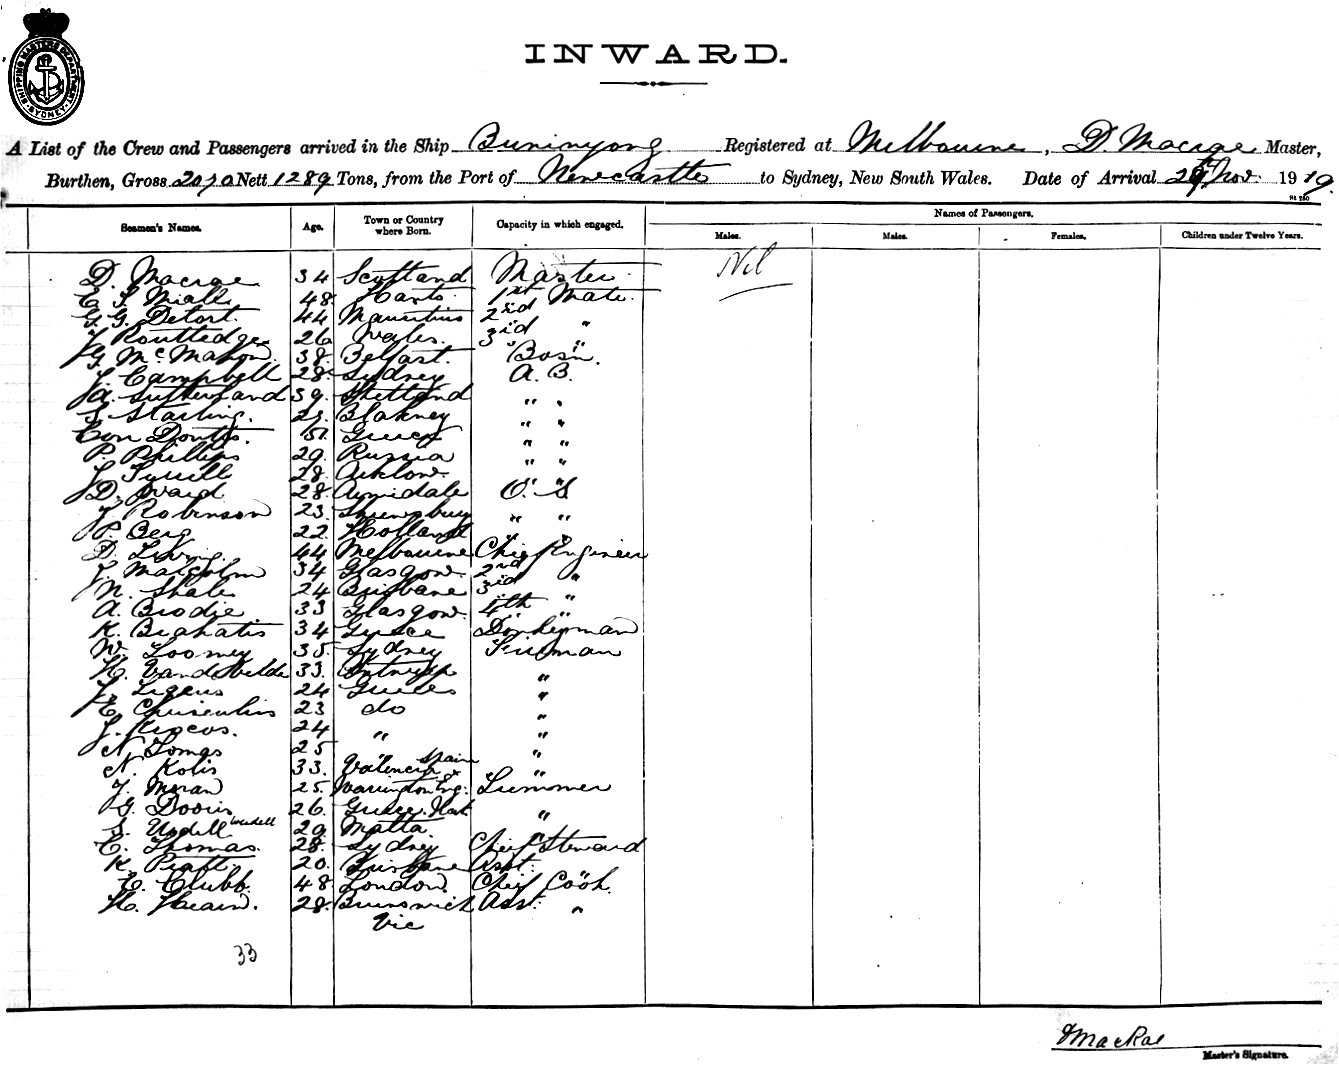 SHIPPING MASTERS DEPARTMENT SYDNEY
INWARD.
A List of the Crew and Passengers arrived in the Ship Buninyong Registered at Melbourne, D. Macrae Master,
Burthen, Gross 2070 Nett 1289 Tons, from the Port of Newcastle to Sydney, New South Wales. Date of Arrival Nov. 1919.
St 250
Names of Passengers.
Seamen's Names. Age. Town or Country where Born. Capacity in which engaged. Males. Males. Females. Children under Twelve Years.
D. Macrae 34 Scotland Master Nil
48. Hants 1st Mate.
G. G. Detort. 44 Mauritius 2nd "
J Routledge 26 Wales. 3rd "
G. McMahon. 38. Belfast. Bosn.
J. Campbell 28. Sydney A. B.
A. Sutherland 39. Shetland " "
S Starling. Blakney " "
Con 51. Greece " "
P. Phillips 29. Russia " "
J. Tyrrell 28. Arklow.
D. Ward 28. Armidale O. S
J Robinson 23. Shrewsbury " "
P. Berg 22. Holland " "
D. 44 Melbourne Chief Engineer
J. Malcolm 34 Glasgow. 2nd "
N. Shale 24 Brisbane 3rd "
A. Brodie 33 Glasgow. 4th "
K. 34 Greece Donkeyman
W. Toomey 35. Sydney Fireman
H. Vandevelde 33. Antwerp "
24 Greece "
E. 23 do "
J. 24 " "
N. Tomas 25 "
N. Kolis 33. Valencia Spain "
J. Moran 25. Warrington Eng. Trimmer
G. 26. Greece. "
S. Usdell 29 Malta.
E. Thomas. 28. Sydney Chief Steward
K. Pratt. 20. Brisbane Asst.
E. Clubb. 48. London. Chief Cook.
H. 28. Brunswick Asst. "
Vic
33
Master's Signature.